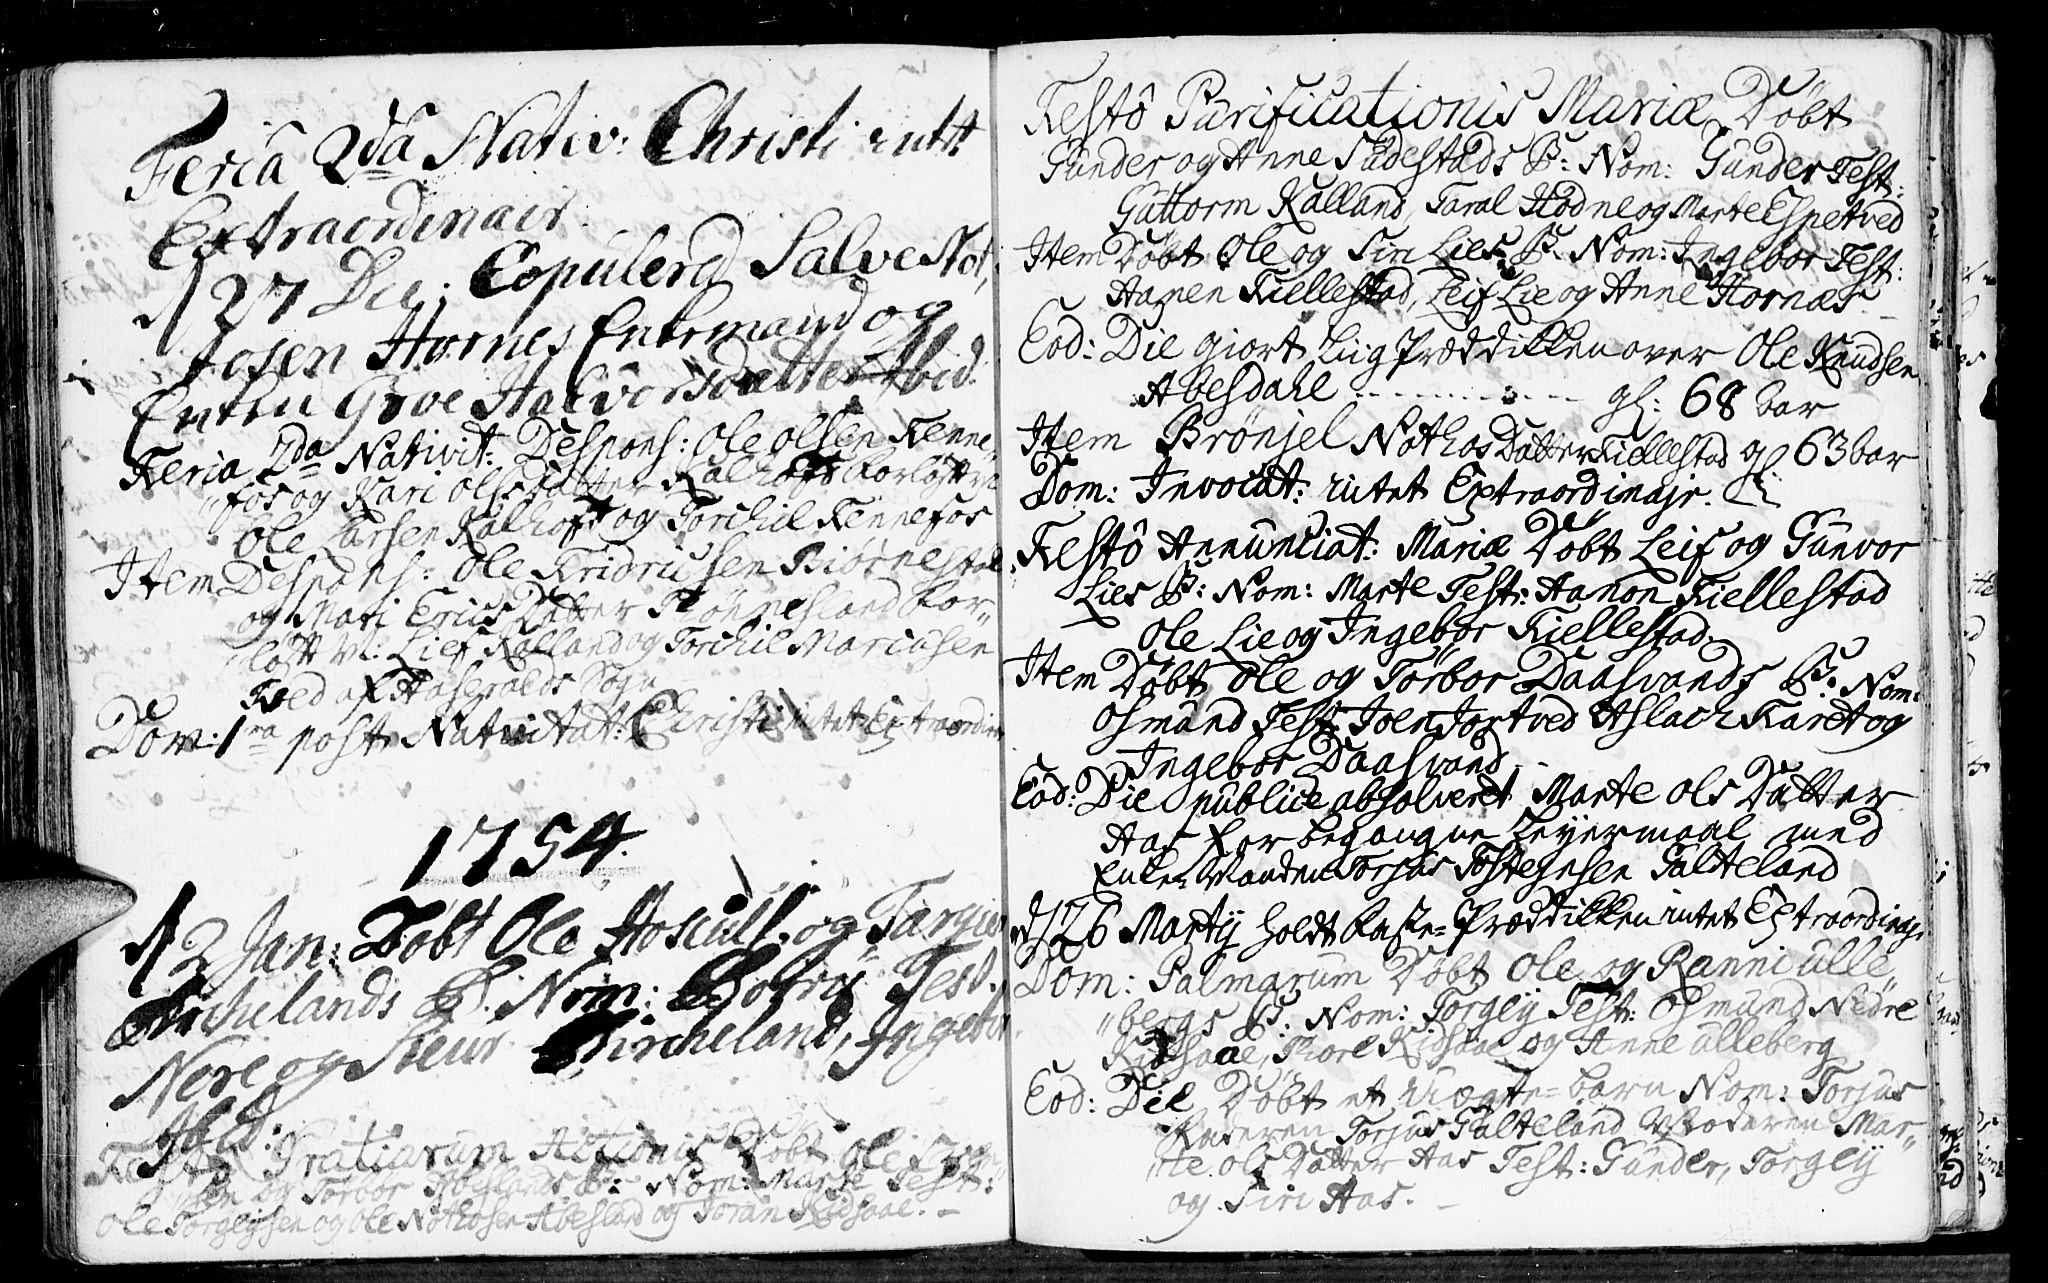 Feria 2da Nativ: Christi intt
Extraordinair.
d 27 Die; Copulered Salve Not,
Hornes Enkemand og
Enken Groe Halvorsdatter Ibid:
Feria 2da Nativit: Despons: Ole Olsen Fenne,
fos og Kari Ols Datter Kalhoft Forlofter
Ole Larsen Kalhoft og Torchil Fennefos
Item Despons: Ole Fridrichsen Biørnestad
og Mari Erics Datter Rønnesland For,,
,,loftt M: Lief Kalland og Torchil Mariusen
Tved af Aaseralds Sogn
Dom: 1ra post Nativitat: Christi intet Extraordinair
1754.
d 2 Jan: Døbt Ole Hoscull. og Targier
Kirchelands B. Nom: Test.
Nere og Kircheland, Ingebor
Ibid:
Festo Gratiarum Actionis Døbt Ole
sen og Torbor B: Nom: Marte Test:
Ole Torgeysen og Ole Nothosen Abesland og Joran Ridsaae. -
Festô Purificationis Mariæ Døbt
Gunder og Anne Sudestads B: Nom: Gunder Test:
Guttorm Kalland, Taral Hodne og Marte Espetved
Item Døbt Ole og Siri Lies B: Nom: Ingebor Test:
Hanen Kiellestad, Leif Lie og Anne Hornæs -
Eod: Die giort Liig Prædikken over Ole Knudsen
Abesdahl - - - - - - - - gl: 68 aar
Item Brønjel Nothos Datter Kiellestad gl: 63 aar
Dom: Invocat: intet Extraordinajr.
Festô Annunciat: Mariæ Døbt Leif og Gunvor
Lies B: Nom: Marte Test: Hanon Kiellestad
Ole Lie og Ingebor Kiellestad.
Item Døbt Ole og Torbor Daasvands B: Nom:
Osmund Test: Joen Jortved Aslach Karet og
Ingebor Daasvand
Eod: Die publice absolveret Marte Ols Datter
Aas for begangne Leyermaal med
Enke-Manden Torjus Tostensen Galteland
d 26 Martij holdt Faste-Prædikken intet Extraordinajr
Dom: Palmarum Døbt Ole og Ranni Ulle,,
,,bergs B: Nom: Torgey Test: Osmund Nedre
Ridsaae, Thore Ridsaae og Anne Ulleberg
Eod: Die Døbt et Uægte-barn Nom: Torjus
Faderen Torjus Galteland Moderen Mar,,
,,te Ols Datter Aas Test: Gunder, Torgey
og Siri Aas. -